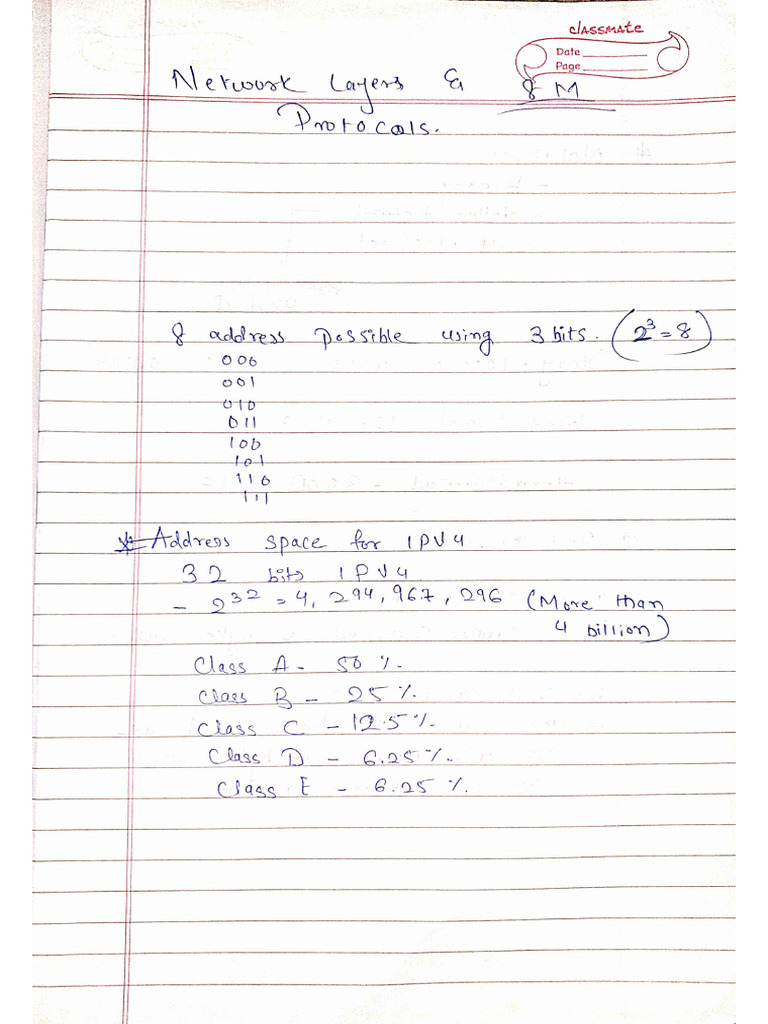 classmate
Date
Page
Network Layers & 8 M
Protocals.
8 address possible using 3 bits. (2³=8)
000
001
010
011
100
101
110
111
* Address space for IPV4.
32 bits IPV4
- 2³² = 4, 294, 967, 296 (More than
4 billion)
Class A - 50 %.
Class B - 25 %.
Class C - 12.5 %.
Class D - 6.25 %.
Class E - 6.25 %.